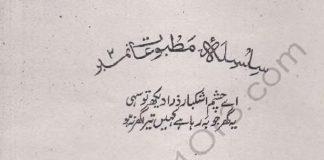 سلسلۂ مطبوعات نمبر ۳
اے چشم اشکبار ذرا دیکھ تو سہی
یہ گھر جو بہہ رہا ہے کہیں تیرا گھر نہ ہو